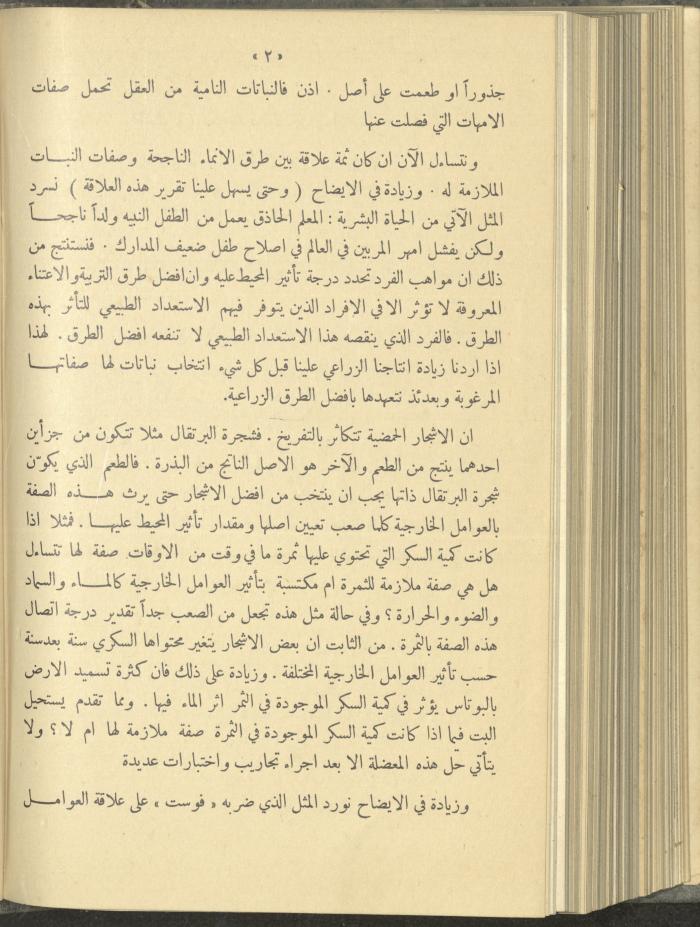 « ٢ »
جذوراً او طعمت على أصل . اذن فالنباتات النامية من العقل تحمل صفات
الامهات التي فصلت عنها
ونتساءل الآن ان كان ثمة علاقة بين طرق الانماء الناجحة وصفات النبــات
الملازمة له . وزيادة في الايضاح ( وحتى يسهل علينا تقرير هذه العلاقة ) نسرد
المثل الآتي من الحياة البشرية : المعلم الحاذق يعمل من الطفل النبيه ولداً ناجحــاً
ولكن يفشل امهر المربين في العالم في اصلاح طفل ضعيف المدارك . فنستنتج من
ذلك ان مواهب الفرد تحدد درجة تأثير المحيط عليه وان افضل طرق التربية والاعتناء
المعروفة لا تؤثر الا في الافراد الذين يتوفر فيهم الاستعداد الطبيعي للتأثر بهذه
الطرق . فالفرد الذي ينقصه هذا الاستعداد الطبيعي لا تنفعه افضل الطرق . لهذا
اذا اردنا زيادة انتاجنا الزراعي علينا قبل كل شيء انتخاب نباتات لها صفاتهــا
المرغوبة وبعدئذ نتعهدها بافضل الطرق الزراعية.
ان الاشجار الحمضية تتكاثر بالتفريخ . فشجرة البرتقال مثلا تتكون من جزأين
احدهما ينتج من الطعم والآخر هو الاصل الناتج من البذرة . فالطعم الذي يكوّن
شجرة البرتقال ذاتها يجب ان ينتخب من افضل الاشجار حتى يرث هــذه الصفة
بالعوامل الخارجية كلما صعب تعيين اصلها ومقدار تأثير المحيط عليهــا . فمثلا اذا
كانت كمية السكر التي تحتوي عليها ثمرة ما في وقت من الاوقات صفة لها نتساءل
هل هي صفة ملازمة للثمرة ام مكتسبة بتأثير العوامل الخارجية كالمــاء والسماد
والضوء والحرارة ؟ وفي حالة مثل هذه تجعل من الصعب جداً تقدير درجة اتصال
هذه الصفة بالثمرة . من الثابت ان بعض الاشجار يتغير محتواها السكري سنة بعد سنة
حسب تأثير العوامل الخارجية المختلفة . وزيادة على ذلك فان كثرة تسميد الارض
بالبوتاس يؤثر في كمية السكر الموجودة في الثمر اثر الماء فيها . ومما تقدم يستحيل
البت فيما اذا كانت كمية السكر الموجودة في الثمرة صفة ملازمة لها ام لا ؟ ولا
يتأتي حل هذه المعضلة الا بعد اجراء تجاريب واختبارات عديدة
وزيادة في الايضاح نورد المثل الذي ضربه « فوست » على علاقة العوامــل